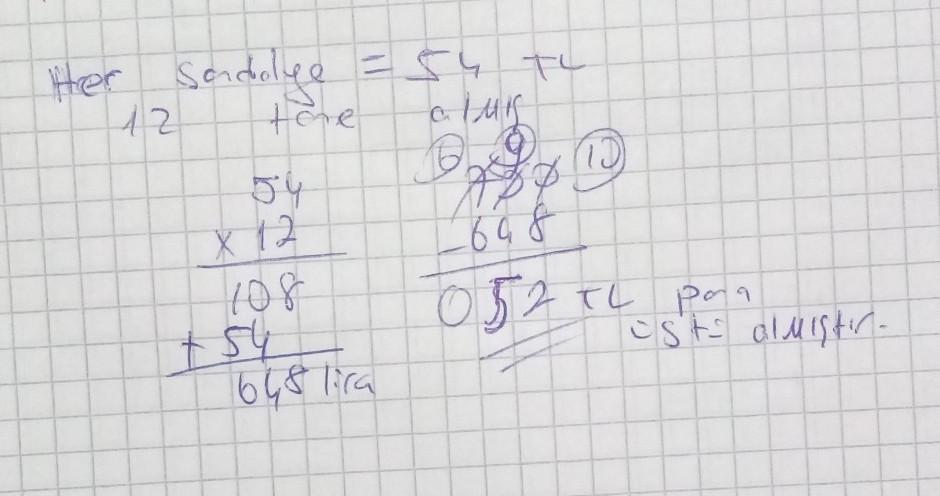 Her Sandalye = 54 TL
12 tane almış
54
x 12
108
+ 54
648 lira
6 9 10
700
- 648
052 TL para
üstü almıştır.